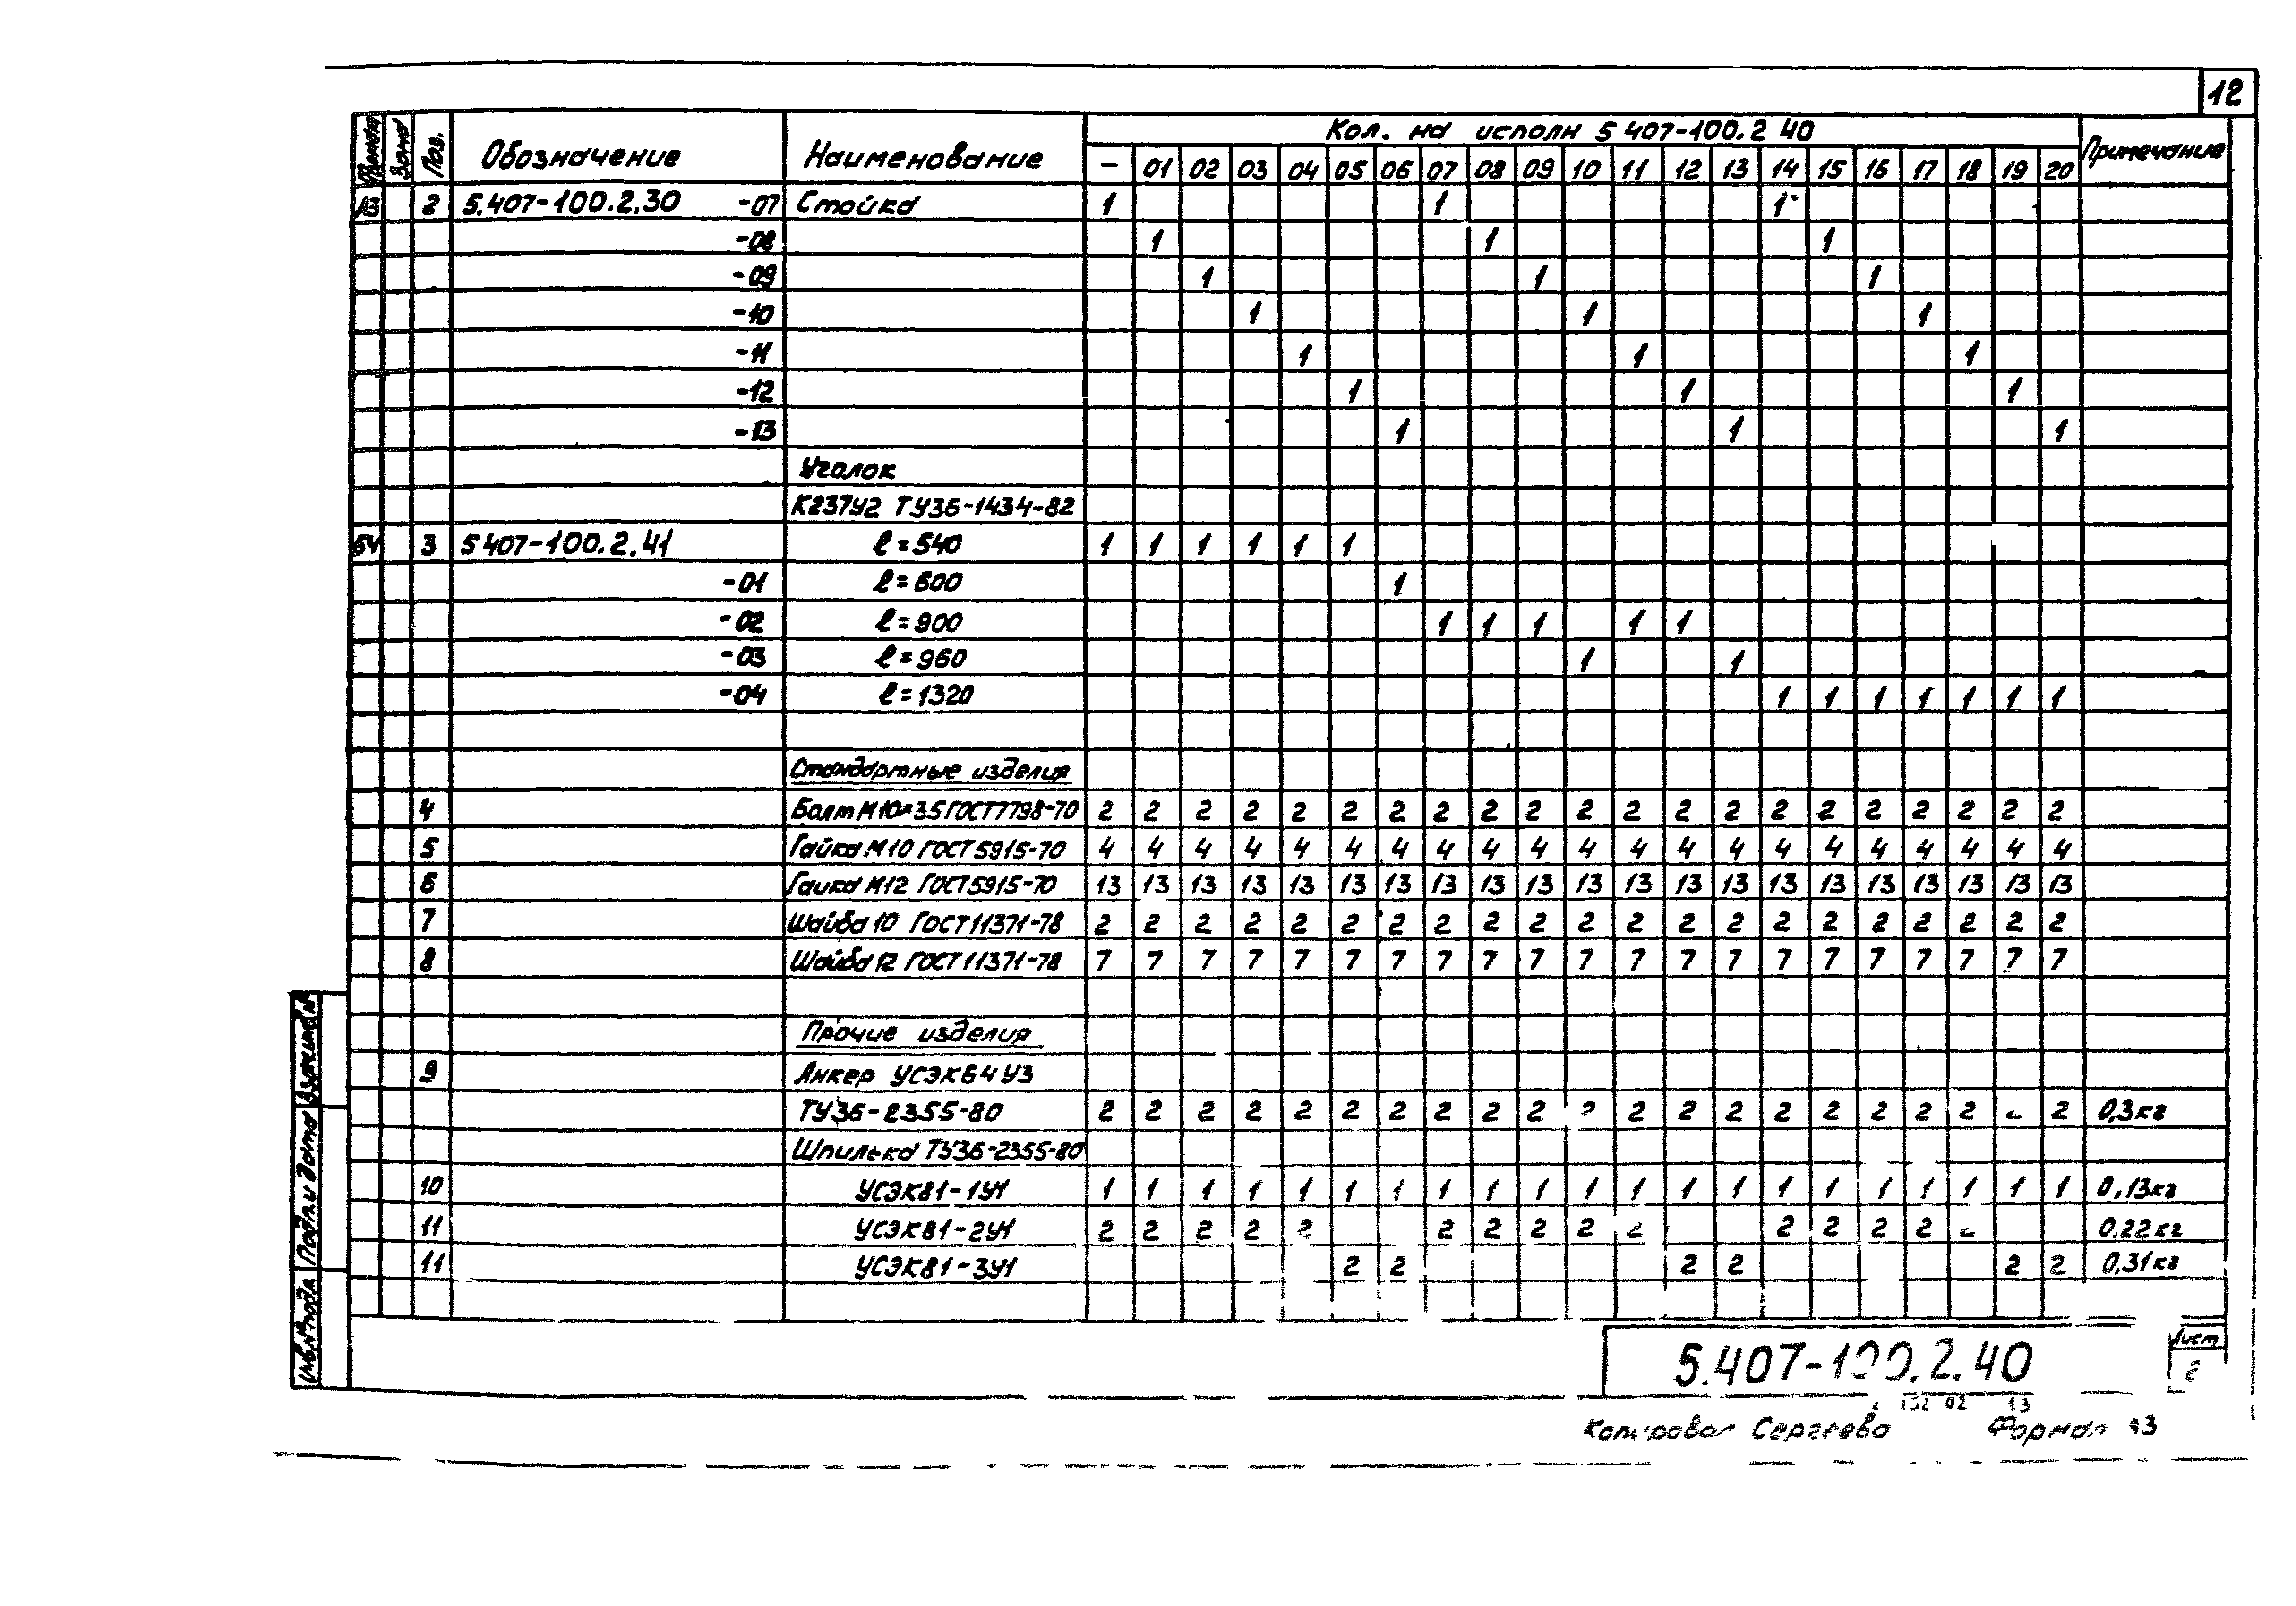 12
Формат Зона Поз. Обозначение Наименование Кол. на исполн 5 407-100.2 40 Примечание
- 01 02 03 04 05 06 07 08 09 10 11 12 13 14 15 16 17 18 19 20
А3 2 5.407-100.2.30 -07 Стойка 1 1 1
-08 1 1 1
-09 1 1 1
-10 1 1 1
-11 1 1 1
-12 1 1 1
-13 1 1 1
Уголок
К237У2 ТУ36-1434-82
БЧ 3 5 407-100.2.41 ℓ=540 1 1 1 1 1 1
-01 ℓ=600 1
-02 ℓ=900 1 1 1 1 1
-03 ℓ=960 1 1
-04 ℓ=1320 1 1 1 1 1 1 1
Стандартные изделия
4 Болт М10×35 ГОСТ7798-70 2 2 2 2 2 2 2 2 2 2 2 2 2 2 2 2 2 2 2 2 2
5 Гайка М10 ГОСТ5915-70 4 4 4 4 4 4 4 4 4 4 4 4 4 4 4 4 4 4 4 4 4
6 Гайка М12 ГОСТ5915-70 13 13 13 13 13 13 13 13 13 13 13 13 13 13 13 13 13 13 13 13 13
7 Шайба 10 ГОСТ11371-78 2 2 2 2 2 2 2 2 2 2 2 2 2 2 2 2 2 2 2 2 2
8 Шайба 12 ГОСТ11371-78 7 7 7 7 7 7 7 7 7 7 7 7 7 7 7 7 7 7 7 7 7
Прочие изделия
9 Анкер УСЭК64У3
ТУ36-2355-80 2 2 2 2 2 2 2 2 2 2 2 2 2 2 2 2 2 2 2 2 2 0,3кг
Шпилька ТУ36-2355-80
10 УСЭК81-1У1 1 1 1 1 1 1 1 1 1 1 1 1 1 1 1 1 1 1 1 1 1 0,13кг
11 УСЭК81-2У1 2 2 2 2 2 2 2 2 2 2 2 2 2 2 2 0,22кг
11 УСЭК81-3У1 2 2 2 2 2 2 0,31кг
Инв.№подл. Подп. и дата Взам.инв.№
5.407-100.2.40
Лист
2
02 13
Копировал Сергеева Формат А3